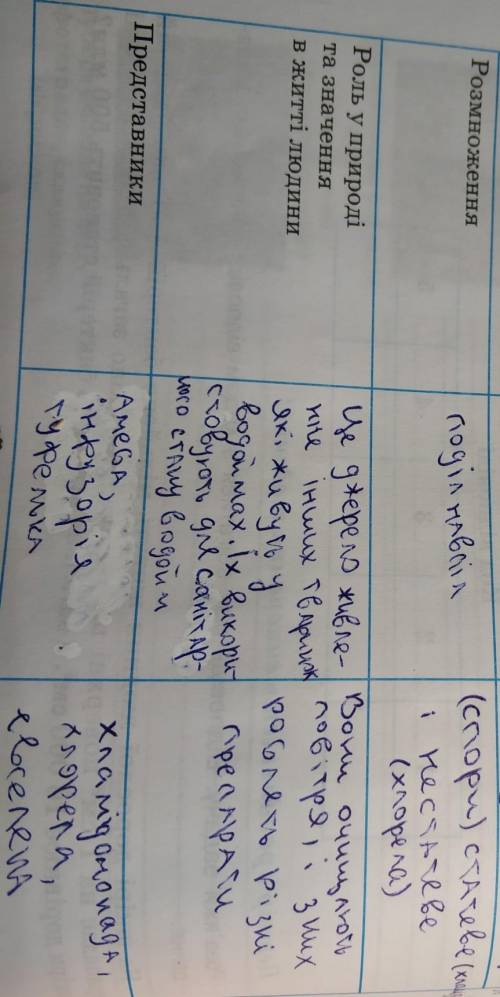 Розмноження
поділ навпіл
(спори) статеве
і нестатеве
(хлорела)
Роль у природі
та значення
в житті людини
Це джерело живле-
ння інших тварин
які живуть у
водоймах. Їх викори-
стовують для санітар-
ного стану водойм
Вони очищають
повітря, і з них
роблять різні
препарати
Представники
Амеба,
інфузорія
туфелька
хламідомонада,
хлорела,
евглена